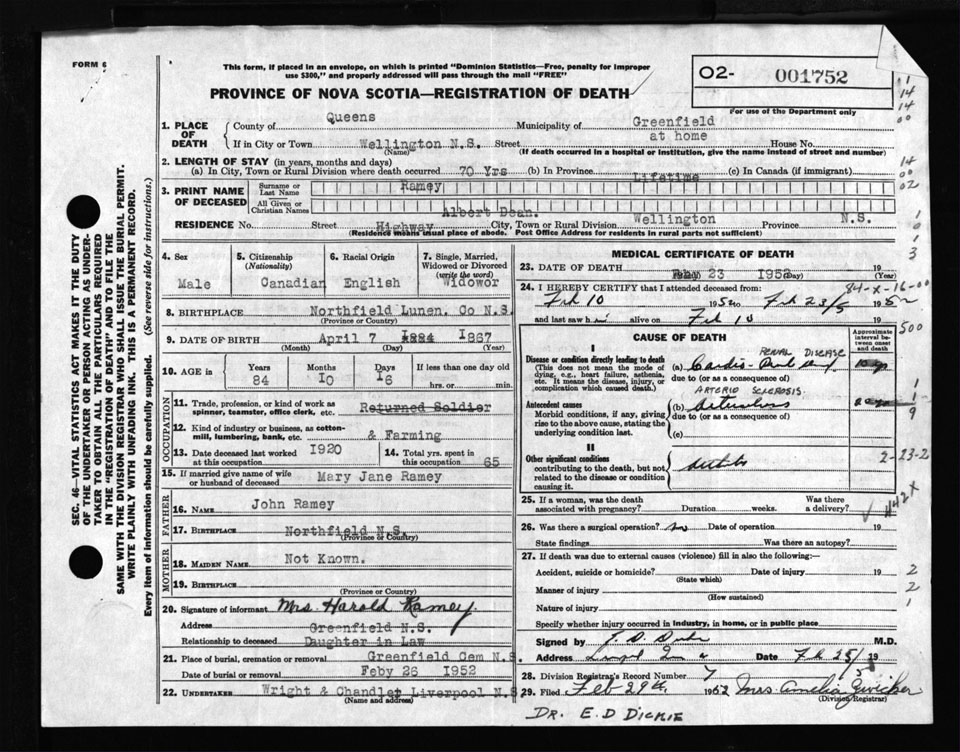 FORM 6
This form, if placed in an envelope, on which is printed "Dominion Statistics—Free, penalty for improper
use $300," and properly addressed will pass through the mail "FREE"
02- 001752
For use of the Department only
PROVINCE OF NOVA SCOTIA—REGISTRATION OF DEATH
SEC. 46—VITAL STATISTICS ACT MAKES IT THE DUTY
OF THE UNDERTAKER OR PERSON ACTING AS UNDER-
TAKER TO OBTAIN ALL THE PARTICULARS REQUIRED
IN THE "REGISTRATION OF DEATH" AND TO FILE THE
SAME WITH THE DIVISION REGISTRAR WHO SHALL ISSUE THE BURIAL PERMIT.
WRITE PLAINLY WITH UNFADING INK. THIS IS A PERMANENT RECORD.
Every item of information should be carefully supplied. (See reverse side for instructions.)
1. PLACE OF DEATH
County of Queens Municipality of Greenfield
If in City or Town Wellington N.S. Street at home House No.
(Name) (If death occurred in a hospital or institution, give the name instead of street and number)
2. LENGTH OF STAY (in years, months and days)
(a) In City, Town or Rural Division where death occurred 70 Yrs (b) In Province Lifetime (c) In Canada (if immigrant)
3. PRINT NAME OF DECEASED
Surname or Last Name Ramey
All Given or Christian Names Albert Dean.
RESIDENCE No. Street Highway City, Town or Rural Division Wellington Province N.S.
(Residence means usual place of abode. Post Office Address for residents in rural parts not sufficient)
4. Sex Male
5. Citizenship (Nationality) Canadian
6. Racial Origin English
7. Single, Married, Widowed or Divorced (write the word) Widowor
8. BIRTHPLACE Northfield Lunen. Co N.S.
(Province or Country)
9. DATE OF BIRTH April 7 1884 1867
(Month) (Day) (Year)
10. AGE in Years 84 Months 10 Days 16 If less than one day old hrs. or min.
OCCUPATION
11. Trade, profession, or kind of work as spinner, teamster, office clerk, etc. Returned Soldier
12. Kind of industry or business, as cotton-mill, lumbering, bank, etc. & Farming
13. Date deceased last worked at this occupation 1920
14. Total yrs. spent in this occupation 65
15. If married give name of wife or husband of deceased Mary Jane Ramey
FATHER
16. NAME John Ramey
17. BIRTHPLACE Northfield N.S.
(Province or Country)
MOTHER
18. MAIDEN NAME Not Known.
19. BIRTHPLACE
(Province or Country)
20. Signature of informant Mrs. Harold Ramey.
Address Greenfield N.S.
Relationship to deceased Daughter in Law
21. Place of burial, cremation or removal Greenfield Cem N.S.
Date of burial or removal Feby 26 1952
22. UNDERTAKER Wright & Chandler Liverpool N.S
(Name and Address)
MEDICAL CERTIFICATE OF DEATH
23. DATE OF DEATH Feby 23 1952 19
(Day) (Year)
84-X-16-00
24. I HEREBY CERTIFY that I attended deceased from:
Feb 10 1952 to Feb 23/5 1952
and last saw h alive on Feb 10
500
CAUSE OF DEATH
Approximate interval between onset and death
I
Disease or condition directly leading to death
(This does not mean the mode of dying, e.g., heart failure, asthenia, etc. It means the disease, injury, or complication which caused death.)
RENAL DISEASE
(a) Cardio-
due to (or as a consequence of)
ARTERIO SCLEROSIS
Antecedent causes
Morbid conditions, if any, giving rise to the above cause, stating the underlying condition last.
(b)
due to (or as a consequence of)
(c)
II
Other significant conditions
contributing to the death, but not related to the disease or condition causing it.
2-23-2
25. If a woman, was the death associated with pregnancy? Duration weeks. Was there a delivery?
442X
26. Was there surgical operation? no Date of operation 19
State findings Was there an autopsy?
27. If death was due to external causes (violence) fill in also the following:—
Accident, suicide or homicide? Date of injury 19
(State which)
Manner of injury
(How sustained)
Nature of injury
Specify whether injury occurred in industry, in home, or in public place
Signed by M.D.
Address Date Feb 25/ 19
28. Division Registrar's Record Number 7
29. Filed Feb 29th 1952 Mrs Amelia Zwicker
(Division Registrar)
DR. E. D DICKIE